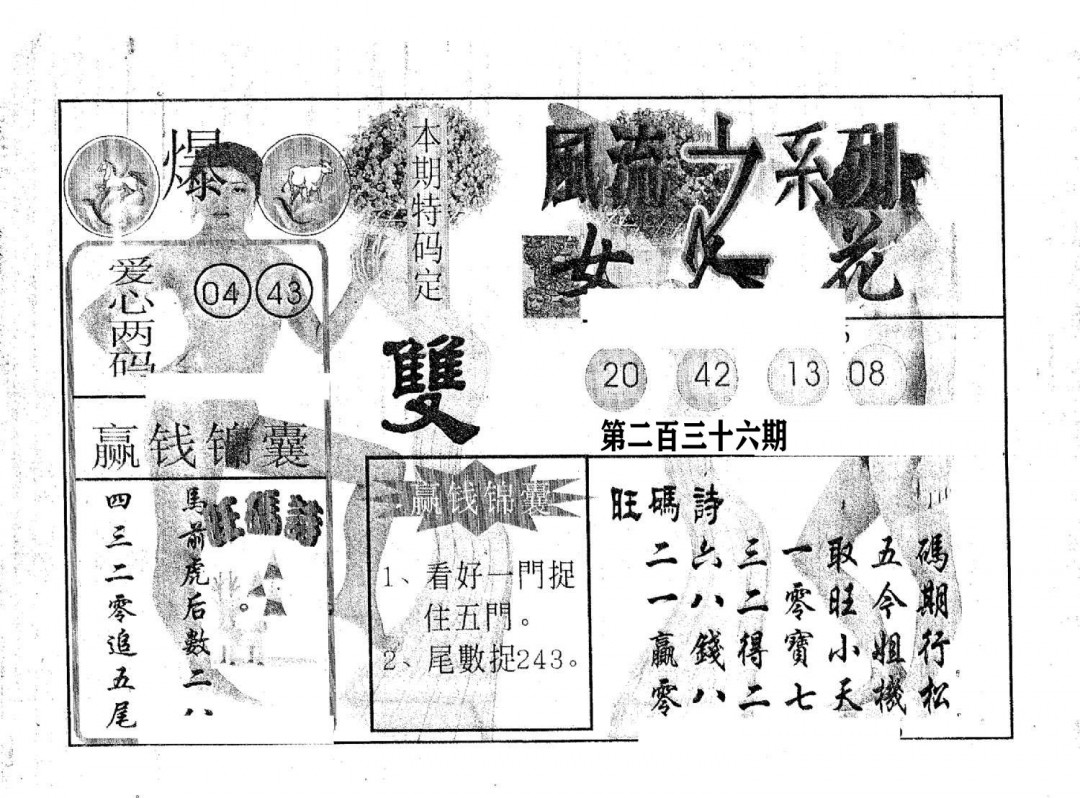 爆
爱心两码
04 43
赢钱锦囊
馬前虎后數二八
四三二零追五尾
旺碼詩
本期特码定
雙
赢钱锦囊
1、看好一門捉
住五門。
2、尾數捉243。
風流之系列
女人花
20 42 13 08
第二百三十六期
旺碼詩
二六三一取五碼
一八二零旺今期
贏錢得寶小姐行
零八二七天機松